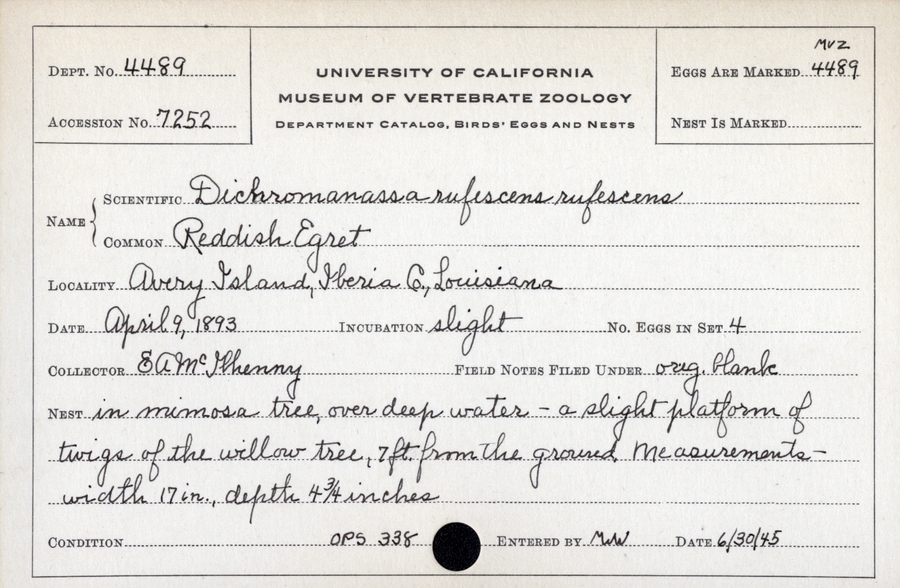 MVZ
DEPT. No. 4489 UNIVERSITY OF CALIFORNIA EGGS ARE MARKED 4489
MUSEUM OF VERTEBRATE ZOOLOGY
ACCESSION No. 7252 DEPARTMENT CATALOG, BIRDS' EGGS AND NESTS NEST IS MARKED
NAME { SCIENTIFIC Dichromanassa rufescens rufescens
COMMON Reddish Egret
LOCALITY Avery Island, Iberia Co., Louisiana
DATE April 9, 1893 INCUBATION slight No. EGGS IN SET 4
COLLECTOR E A McIlhenny FIELD NOTES FILED UNDER orig. blank
NEST in mimosa tree, over deep water – a slight platform of
twigs of the willow tree, 7 ft. from the ground. Measurements –
width 17 in., depth 4 3/4 inches
CONDITION OPS 338 ENTERED BY MWW DATE 6/30/45